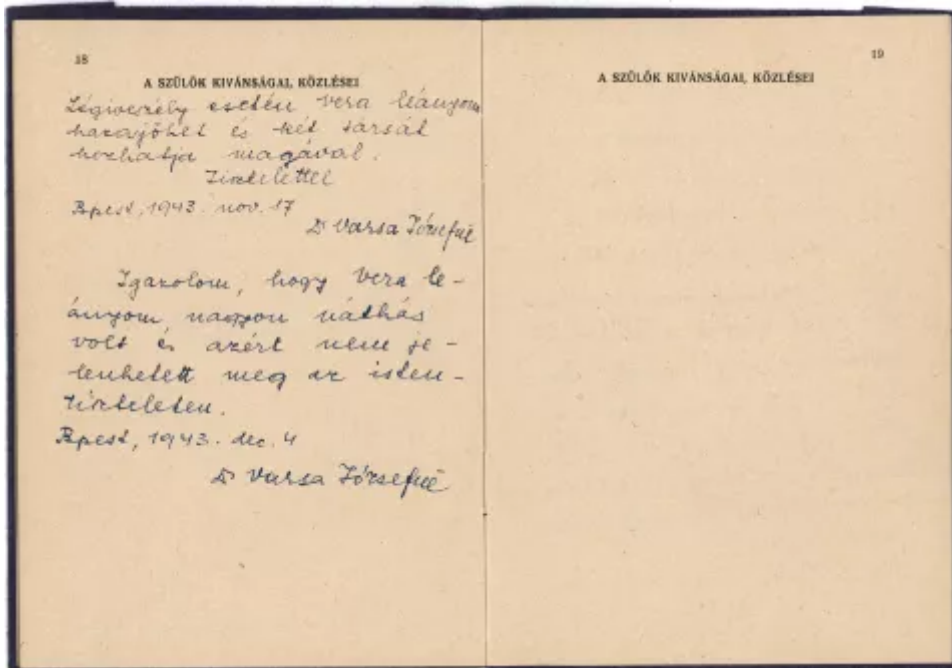 18
A SZÜLŐK KIVÁNSÁGAI, KÖZLÉSEI
Légiveszély esetén Vera leányom
hazajöhet és két társát
hozhatja magával.
Tisztelettel
Bpest, 1943. nov. 17
Dr Varsa Józsefné
Igazolom, hogy Vera le-
ányom nagyon náthás
volt és azért nem je-
lenhetett meg az isten-
tiszteleten.
Bpest, 1943. dec. 4
Dr Varsa Józsefné
19
A SZÜLŐK KIVÁNSÁGAI, KÖZLÉSEI